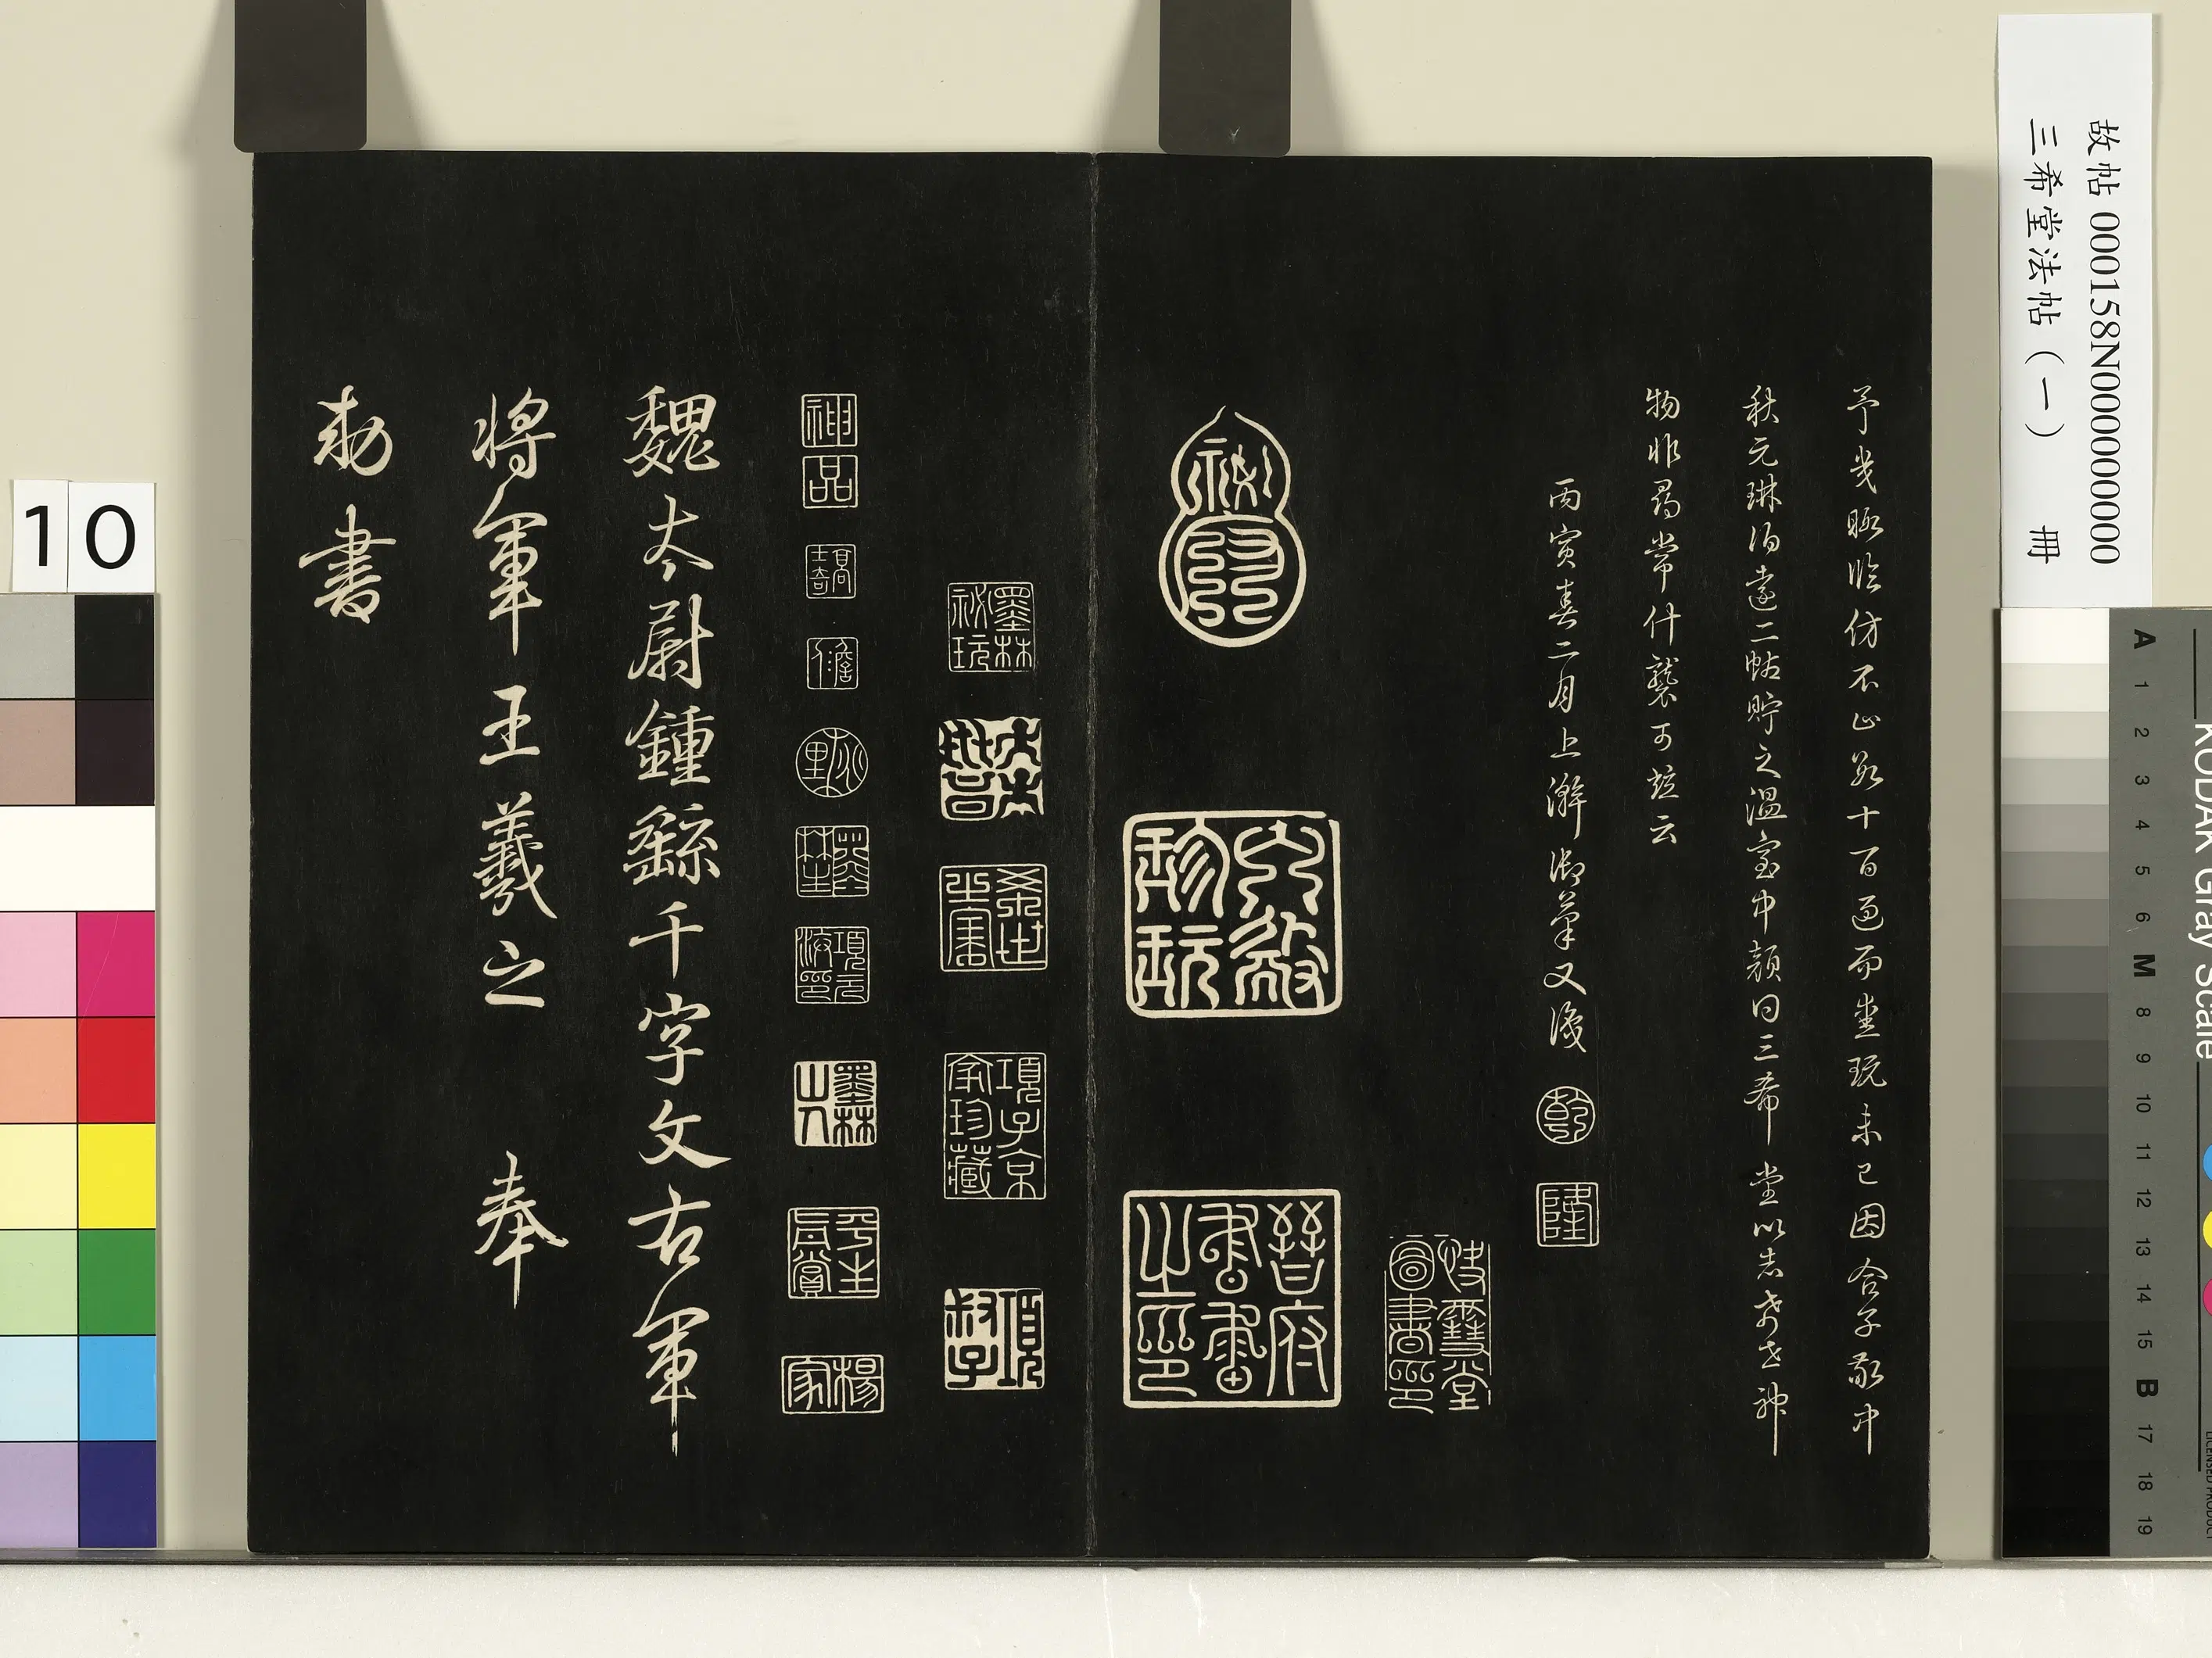 予幾暇臨仿不止數十百過而愛玩未已因合子敬中
秋元琳伯遠二帖貯之溫室中顏曰三希堂以志希世神
物非尋常什襲可並云
丙寅春二月上澣御筆又識
乾
隆
快雪堂
圖書印
內殿
珍玩
晉府
書畫
之印
墨林
祕玩
項子京
家珍藏
項
叔子
神
品
墨林
山人
平生
真賞
楊
家
魏太尉鍾繇千字文右軍
將軍王羲之 奉
勅書
故帖 000158N000000000
三希堂法帖(一) 冊
10
KODAK Gray Scale
A 1 2 3 4 5 6 M 8 9 10 11 12 13 14 15 B 17 18 19